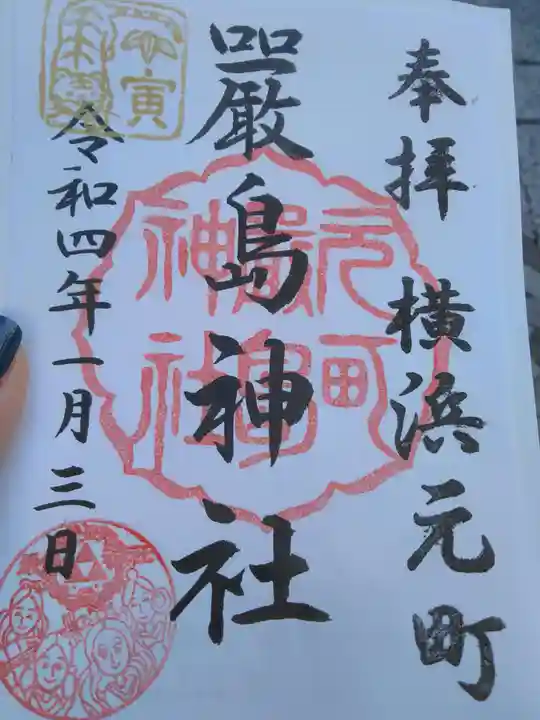 奉拝 横浜元町
嚴島神社
元町
嚴島
神社
令和四年一月三日
寅